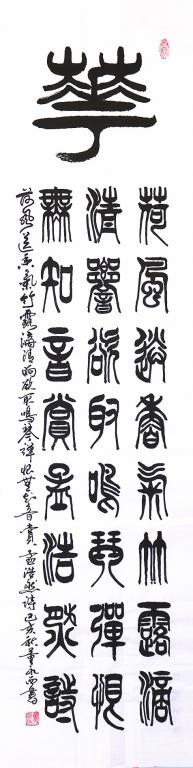 華
荷風送香氣竹露滴
清響欲取鳴琴彈恨
無知音賞孟浩然詩
荷風送香氣竹露滴清响欲取鳴琴彈恨無知音賞孟浩然詩己亥秋書